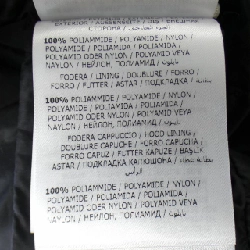 100% POLIAMMIDE / POLYAMIDE / NYLON /
POLYAMID / POLIAMIDA / POLIAMIDA /
POLYAMID ODER NYLON / POLYAMID VEYA
NAYLON / НЕЙЛОН, ПОЛИАМИД / نايلون
FODERA / LINING / DOUBLURE / FORRO /
FORRO / FUTTER / ASTAR / ПОДКЛАДКА /
100% POLIAMMIDE / POLYAMIDE / NYLON /
POLYAMIDE / POLIAMIDA / POLIAMIDA /
POLYAMID ODER NYLON / POLYAMID VEYA
NAYLON / НЕЙЛОН, ПОЛИАМИД / نايلون
FODERA CAPPUCCIO / HOOD LINING /
DOUBLURE CAPUCHE / FORRO CAPUCHA /
FORRO CAPUZ / FUTTER KAPUZE / BAŞLIK
ASTARI / ПОДКЛАДКА КАПЮШОНА /
100% POLIAMMIDE / POLYAMIDE / NYLON /
POLYAMIDE / POLIAMIDA / POLIAMIDA /
POLYAMID ODER NYLON / POLYAMID VEYA
NAYLON / НЕЙЛОН, ПОЛИАМИД / نايلون